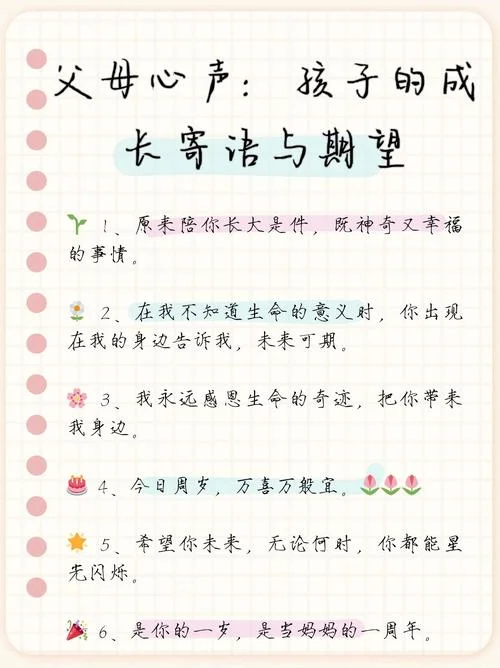 父母心声：孩子的成
长寄语与期望
🌱 1、原来陪你长大是件，既神奇又幸福
的事情。
🌼 2、在我不知道生命的意义时，你出现
在我的身边告诉我，未来可期。
🌸 3、我永远感恩生命的奇迹，把你带来
我身边。
🎂 4、今日周岁，万喜万般宜。🌷🌷🌷
🌟 5、希望你未来，无论何时，你都能星
光闪烁。
🎉 6、是你的一岁，是当妈妈的一周年。